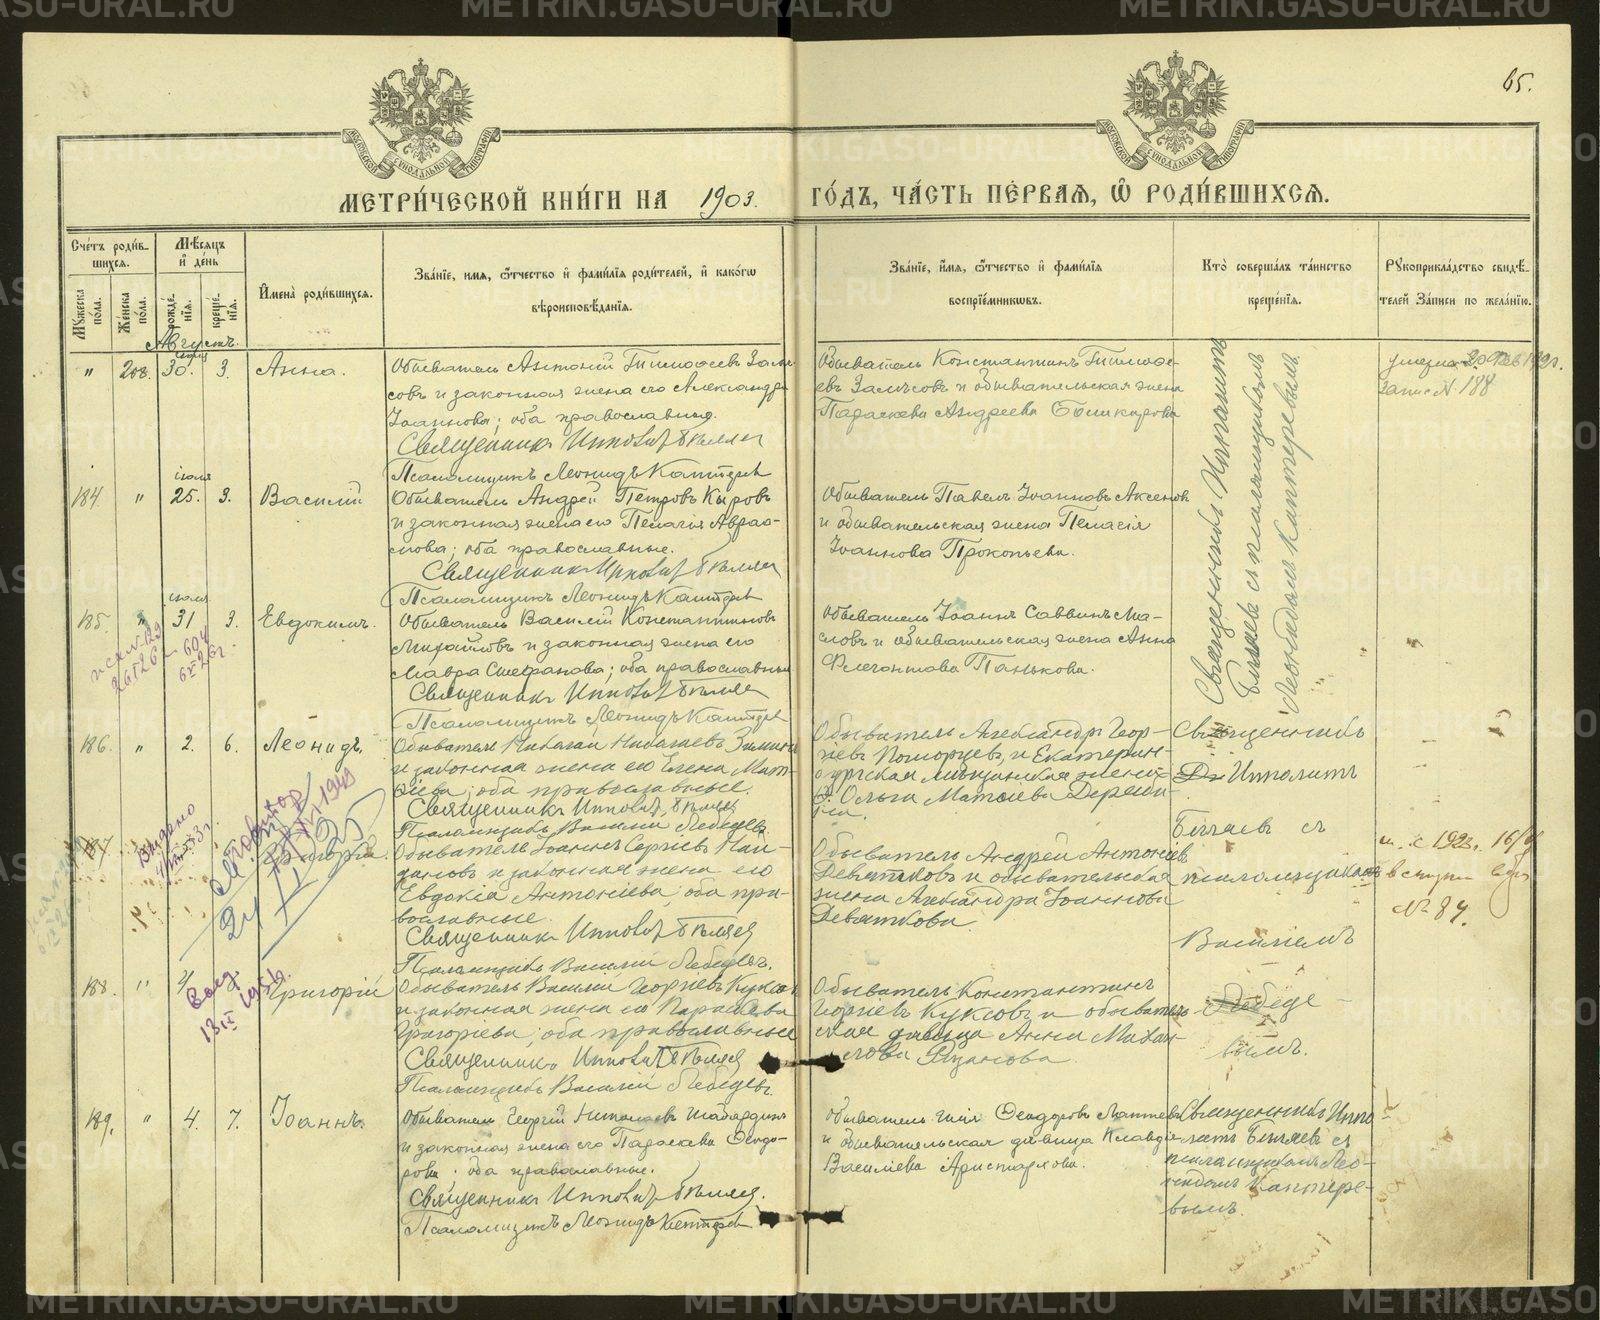 65.
МЕТРИ́ЧЕСКОЙ КНИ́ГИ НА 1903. ГО́ДЪ, ЧА́СТЬ ПЕ́РВАЯ, Ѽ РОДИ́ВШИХСЯ.
Сче́тъ роди́в-
шихся.
Мѣ́сяцъ
и҆ де́нь
И҆мена̀ роди́вшихся.
Зва́нїе, и҆мя, ѻ҆́тчество и҆ фами́лїѧ роди́телей, и҆ како́гѡ
вѣроисповѣ́данїѧ.
Зва́нїе, и҆́мя, ѻ҆́тчество и҆ фами́лїѧ
воспрїе́мниковъ.
Кто̀ соверша́лъ та́инство
креще́нїѧ.
Рꙋкоприкла́дство свидѣ́-
телей За́писи по жела́нїю.
Мꙋ́жеска
по́ла.
Же́нска
по́ла.
рожде́-
нїѧ.
креще́-
нїѧ.
Августъ.
" 208. 30. 3. Анна.
Обыватель Антоній Тимофеевъ
совъ и законная жена его Александра
Іоаннова; оба православные.
Священникъ Ипполитъ Бѣляев
Псаломщикъ Леонидъ Каптерев
Обыватель Константинъ Тимофе-
евъ и обывательская жена
Параскева Андреева Башкирова
записи № 188
184. " іюля 25. 3. Василій
Обыватель Андрей Петровъ Кыровъ
и законная жена его Пелагія Авраа-
мова; оба православные.
Священникъ Ипполитъ Бѣляев
Псаломщикъ Леонидъ Каптерев
Обыватель Павелъ Іоанновъ Аксенов
и обывательская жена Пелагія
Іоаннова Прокопьева.
Священникъ Ипполитъ
Бѣляевъ съ псаломщикомъ
Леонидомъ Каптеревымъ.
185. " іюля 31 3. Евдокимъ.
Обыватель Василій Константиновъ
Михайловъ и законная жена его
Мавра Стефанова; оба православные
Священникъ Ипполитъ Бѣляев
Псаломщикъ Леонидъ Каптерев
Обыватель Іоаннъ Саввинъ Ма-
словъ и обывательская жена Анна
Флегонтова Панькова.
186. " 2. 6. Леонидъ.
Обыватель Николай Николаевъ Зимин
и законная жена его Елена Мат-
ѳіева; оба православные.
Священникъ Ипполитъ Бѣляев
Псаломщикъ Василій Лебедевъ
Обыватель Александръ Геор-
гіевъ Поморцевъ, и Екатерин-
бургская мѣщанская жена
Ольга Матвіева
Священникъ
Ипполитъ
Бѣляевъ съ
псаломщикомъ
Василіемъ
Лебеде-
вымъ.
187 Георгій.
Обыватель Іоаннъ Сергіевъ Най-
дановъ и законная жена его
Евдокія Антоніева; оба пра-
вославные.
Священникъ Ипполитъ Бѣляев
Псаломщикъ Василій Лебедевъ.
Обыватель Андрей Антоніевъ
Девятковъ и обывательская
жена Александра Іоаннова
Девяткова.
№ 84.
Выдано
Повтор
188. " 4 Григорій
Обыватель Василій Георгіевъ Куксов
и законная жена его Параскева
Григорьева; оба православные
Священникъ Ипполитъ Бѣляев
Псаломщикъ Василій Лебедевъ.
Обыватель Константинъ
Георгіевъ Куксовъ и обыватель-
ская дѣвица Анна Михаи-
лова Рязанова.
189. " 4. 7. Іоаннъ.
Обыватель Георгій Николаевъ
и законная жена его Параскева Ѳеодо-
рова; оба православные.
Священникъ Ипполитъ Бѣляев.
Псаломщикъ Леонидъ Каптерев
Обыватель Илія Ѳеодоровъ Лаптевъ
и обывательская дѣвица Клавдія
Василіева Аристархова.
Священникъ Иппо-
литъ Бѣляевъ съ
псаломщикомъ Лео-
нидомъ Каптере-
вымъ.
METRIKI.GASU-URAL.RU